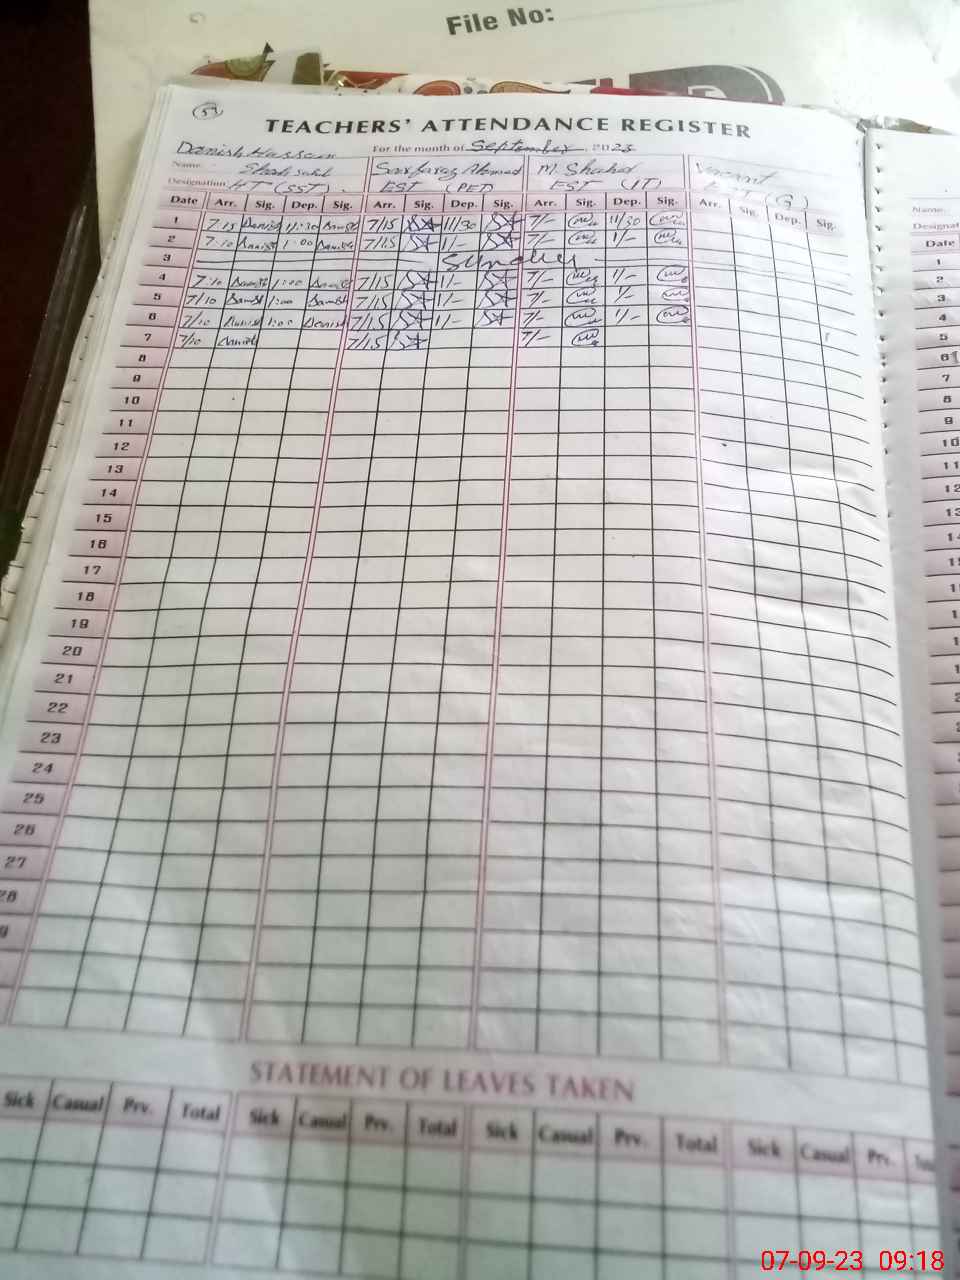 File No:
59
TEACHERS' ATTENDANCE REGISTER
Danish Hassan For the month of September 2023
Name Shah Sarfaraz Ahmed M. Shahid Vacant
Designation HT (SST) EST (PET) EST (IT) (G)
Date Arr. Sig. Dep. Sig. Arr. Sig. Dep. Sig. Arr. Sig. Dep. Sig. Arr. Sig. Dep. Sig.
1 7:15 Danish 11:30 Danish 7/15 11/30 7/- 11/30
2 7:10 Danish 1:00 Danish 7/15 1/- 7/- 1/-
3 Sunday
4 7:10 Danish 1:00 Danish 7/15 1/- 7/- 1/-
5 7/10 Danish 1:00 Danish 7/15 1/- 7/- 1/-
6 7/10 Danish 1:00 Danish 7/15 1/- 7/- 1/-
7 7/10 Danish 7/15 7/-
8
9
10
11
12
13
14
15
16
17
18
19
20
21
22
23
24
25
26
27
28
STATEMENT OF LEAVES TAKEN
Sick Casual Prv. Total Sick Casual Prv. Total Sick Casual Prv. Total Sick Casual Prv.
Name.
Date
1
2
3
4
5
6
7
8
9
10
11
12
13
07-09-23 09:18